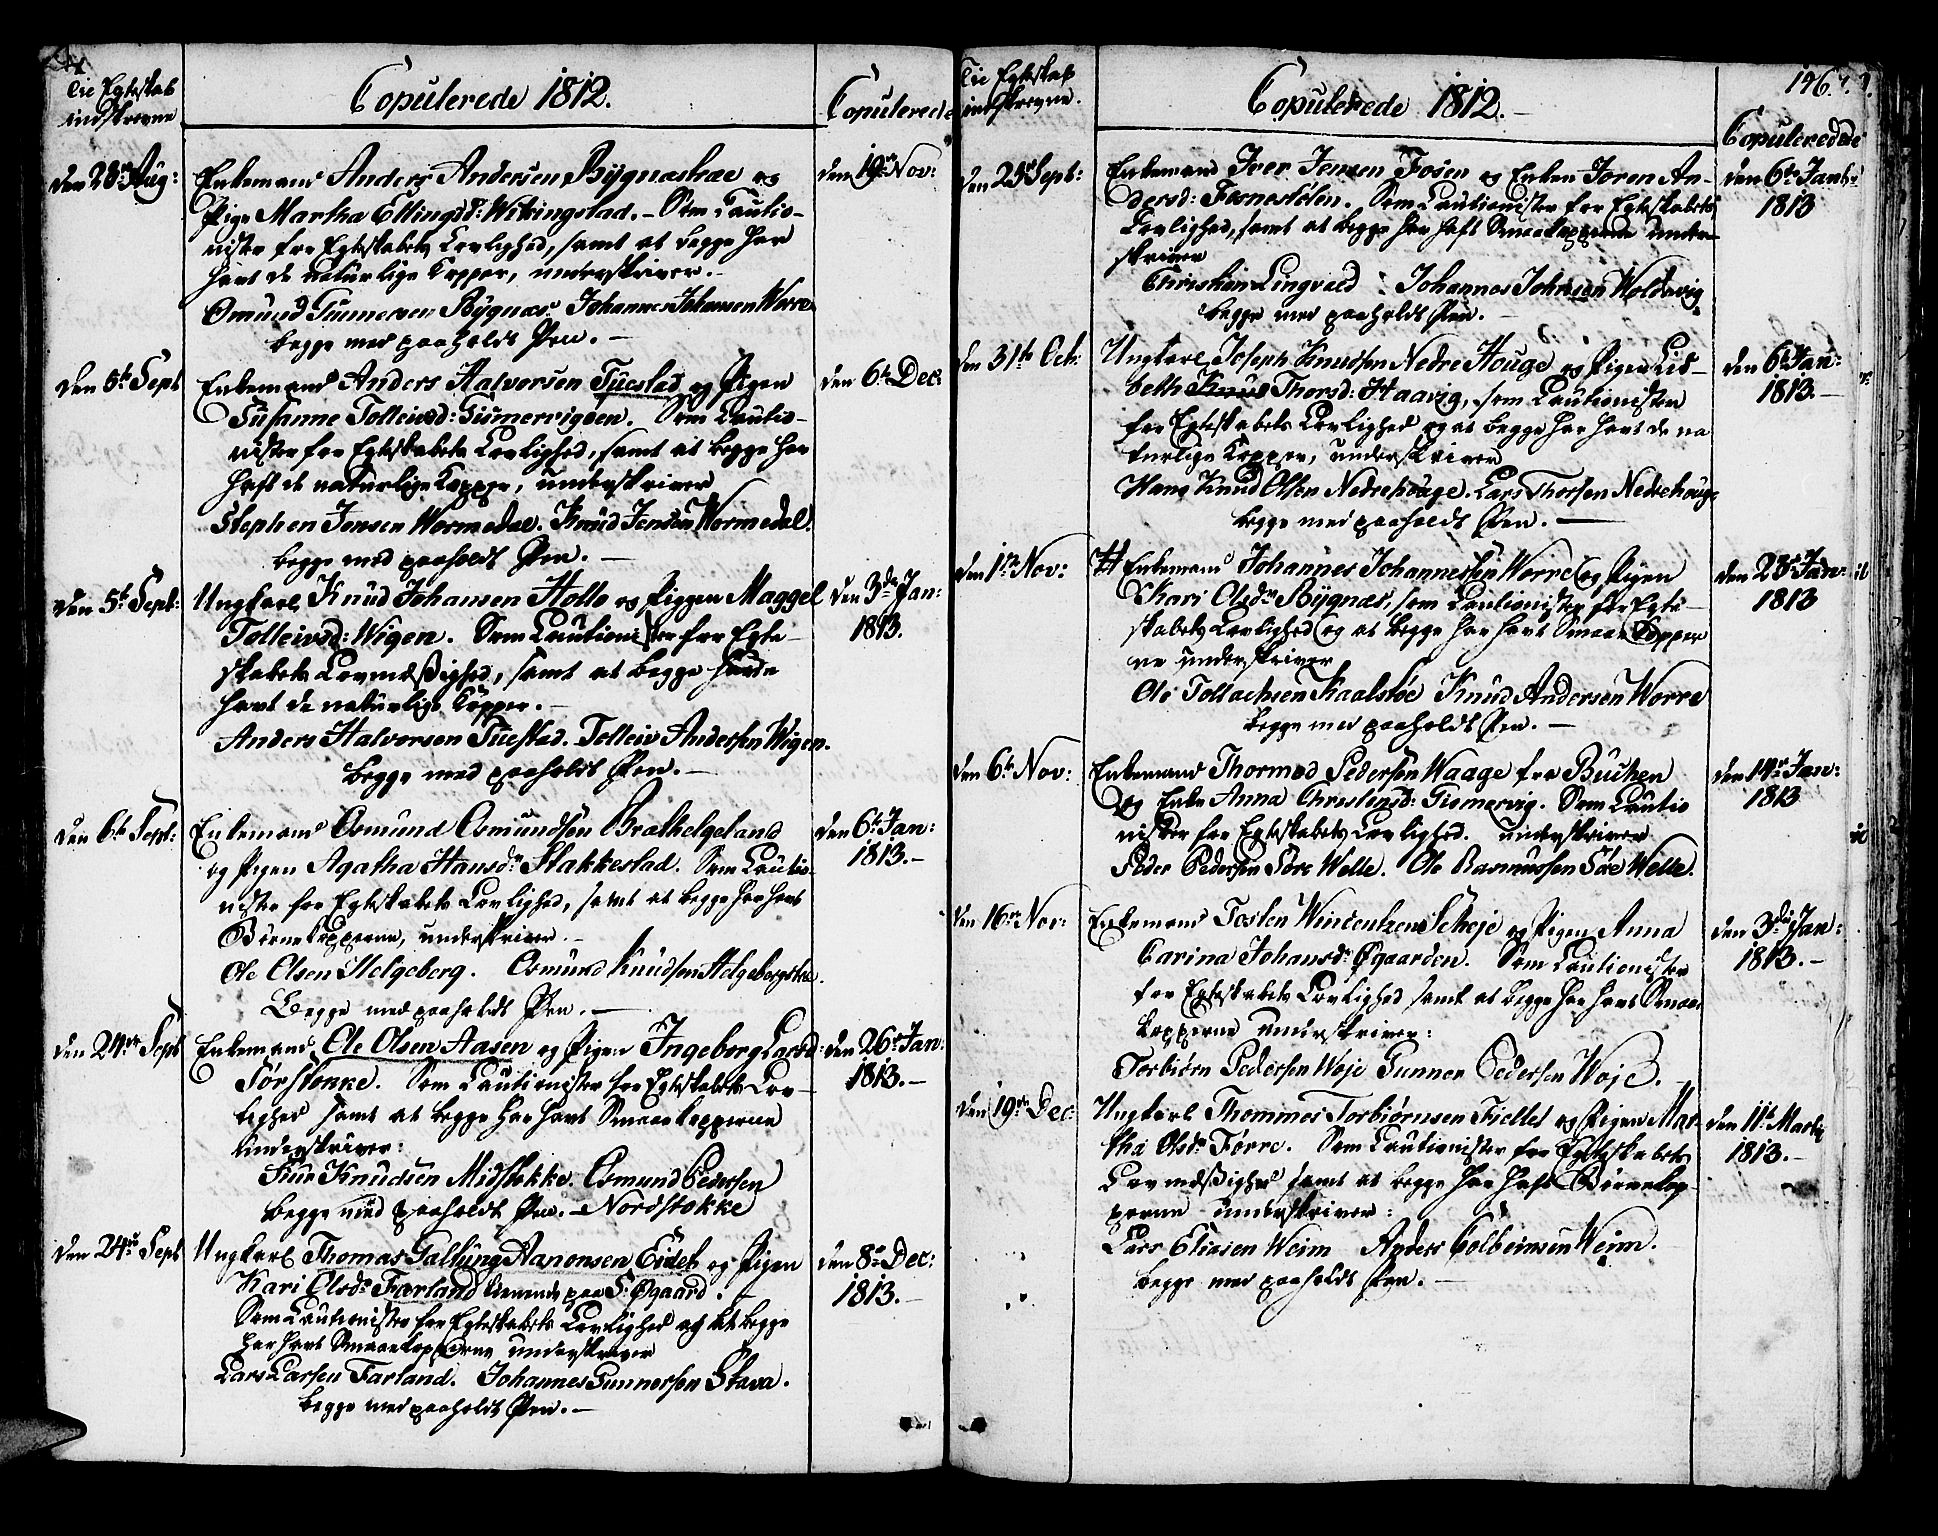 Til Egteskab
indskrevne
Copulerede 1812.
Copulerede
den 28de Aug:
Enkemand Anders Andersen Bÿgnæstræe og
Pige Martha Ellingsd: Wikingstad. – Som Cautio-
nister for Egteskabets Lovlighed, samt at begge har
havt de naturlige Kopper, underskriver.
Omund Gunnersen Bÿgnæs Johannes Johansen Worre
begge med paaholdt Pen. –
den 19de Nov:
den 5te Sept
Enkemand Anders Halvorsen Tuestad og Pigen
Susanne Tolleivsd: Gismervigøen. Som Cautio-
nister for Egteskabets Lovlighed, samt at begge har
haft de naturlige Kopper, underskriver
Stephen Jensen Wormedal. Knud Jensen Wormedal.
begge med paaholdt Pen. –
den 6te Dec:
den 5te Sept:
Ungkarl Knud Johansen Hollo og Piggen Maggel
Tolleivsd: Wigen. Som Cautionister for Egte-
skabets Lovmæßighed, samt at begge havde
havt de naturlige Kopper. –
Anders Halvorsen Tuestad. Tolleiv Andersen Wigen.
begge med paaholdt Pen. –
den 3de Jan:
1813.
den 6te Sept:
Enkemand Osmund Osmundsen Brathelgeland
og Pigen Agatha Hansdr Stakkestad. Som Cautio-
nister for Egteskabets Lovlighed, samt at begge har havt
Børnekopperne, underskriver. –
Ole Olsen Helgeberg. Osmund Knudsen
Begge med paaholdt Pen. –
den 6te Jan:
1813. –
den 24de Sept
Enkemand Ole Olsen Aasen og Pigen Ingeborg Larsd:
Sørstokke. Som Cautionister for Egteskabets Lov-
lighed samt at begge har havt Smaaekopperne
underskriver:
Knudsen Midstokke. Osmund Pedersen
begge med paaholdt Pen. – Nordstokke
den 26de Jan:
1813. –
den 24de Sept
Ungkarl Thomas Gallung Aanonsen Eidet og Pigen
Kari Olsdr Færland tienende paa S: Øgaard. –
Som Cautionister for Egteskabets Lovlighed og at begge
har havt Smaaekopperne underskriver
Lars Larsen Farland. Johannes Gunnersen Stava.
begge med paaholdt Pen. –
den 8de Dec:
1813. –
Til Egteskab
indskrevne.
Copulerede 1812. –
146.
Copulerede
den 25de Sept:
Enkemand Iver Jensen Fosen og Enken Joren An-
dersd: Fosnestølen. Som Cautionister for Egteskabets
Lovlighed, samt at begge har haft Smaaekopperne under-
skriver
Christian Lingvald : Johannes Johnsen Woldevig
begge med paaholdt Pen. –
den 6te Janr:
1813
den 31te Oct:
Ungkarl Joseph Knudsen Nedre Houge og Pigen Lis-
beth Knud Thorsd: Haavig, som Cautionister
for Egteskabets Lovlighed og at begge har havt de na
turlige Kopper, underskriver
Hans Knud Olsen Nedrehouge. Lars Thorsen Nedrehouge
begge med paaholdt Pen. –
den 6te Jan:
1813. –
den 1ste Nov:
# Enkemand Johannes Johannessen Worre og Pigen
Kari Olsdr Bÿgnæs, som Cautionister for Egte-
skabets Lovlighed og at begge har havt Smaae Kopper
ne underskriver
Ole Tollachsen Kaalstøe Knud Andersen Worre
begge med paaholdt Pen. –
den 28de Jan:
1813
den 6te Nov:
Enkemand Thormod Pedersen Waage fra Buchen
og Enke Anna Christensd: Gismervig. Som Cautio
nister for Egteskabets Lovlighed. underskriver
Peder Pedersen Søre Welle. Ole Rasmussen Søre Welle.
den 14de Jan:
1813
den 16de Nov:
Enkemand Tosten Weindentzen Scheje og Pigen Anna
Carina Johansdr Øgaarden. Som Cautionister
for Egteskabets Lovlighed samt at begge har havt Smaae
kopperne underskriver:
Torbiørn Pedersen Woje Gunner Pedersen Woje. –
den 3de Jan:
1813. –
den 19de Dec:
Ungkarl Thommes Torbiørnsen Fiellet og Pigen Mar-
tha Olsdr Førre. Som Cautionister for Egteskabets
Lovmæßighed samt at begge har haft Børnekop
perne underskriver:
Lars Eliasen Weim Anders Colbeinsen Weim.
begge med paaholdt Pen. –
den 11te Martz
1813. –